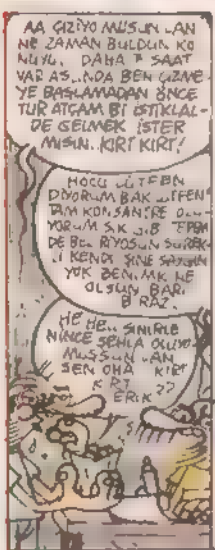 AA ÇİZİYO MUSUN LAN
NE ZAMAN BULDUN KO
NUYU, DAHA 7 SAAT
VAR ASLINDA BEN ÇİZME
YE BAŞLAMADAN ÖNCE
TUR ATÇAM Bİ İSTİKLAL-
DE GELMEK İSTER
MİSİN.. KIRT KIRT!
HOCU LÜTFEN
DİYORUM BAK LÜTFEN
TAM KONSANTRE OLU-
YORUM
DE BELİRİYOSUN SÜREK-
Lİ KENDİ
YOK BENİMKİ NE
OLSUN BARİ
BİRAZ
HE HE.. SİNİRLE
NİNCE ŞEHLA OLUYO
MUSSUN LAN
SEN OHA KIRT
KIRT
ERİK ??